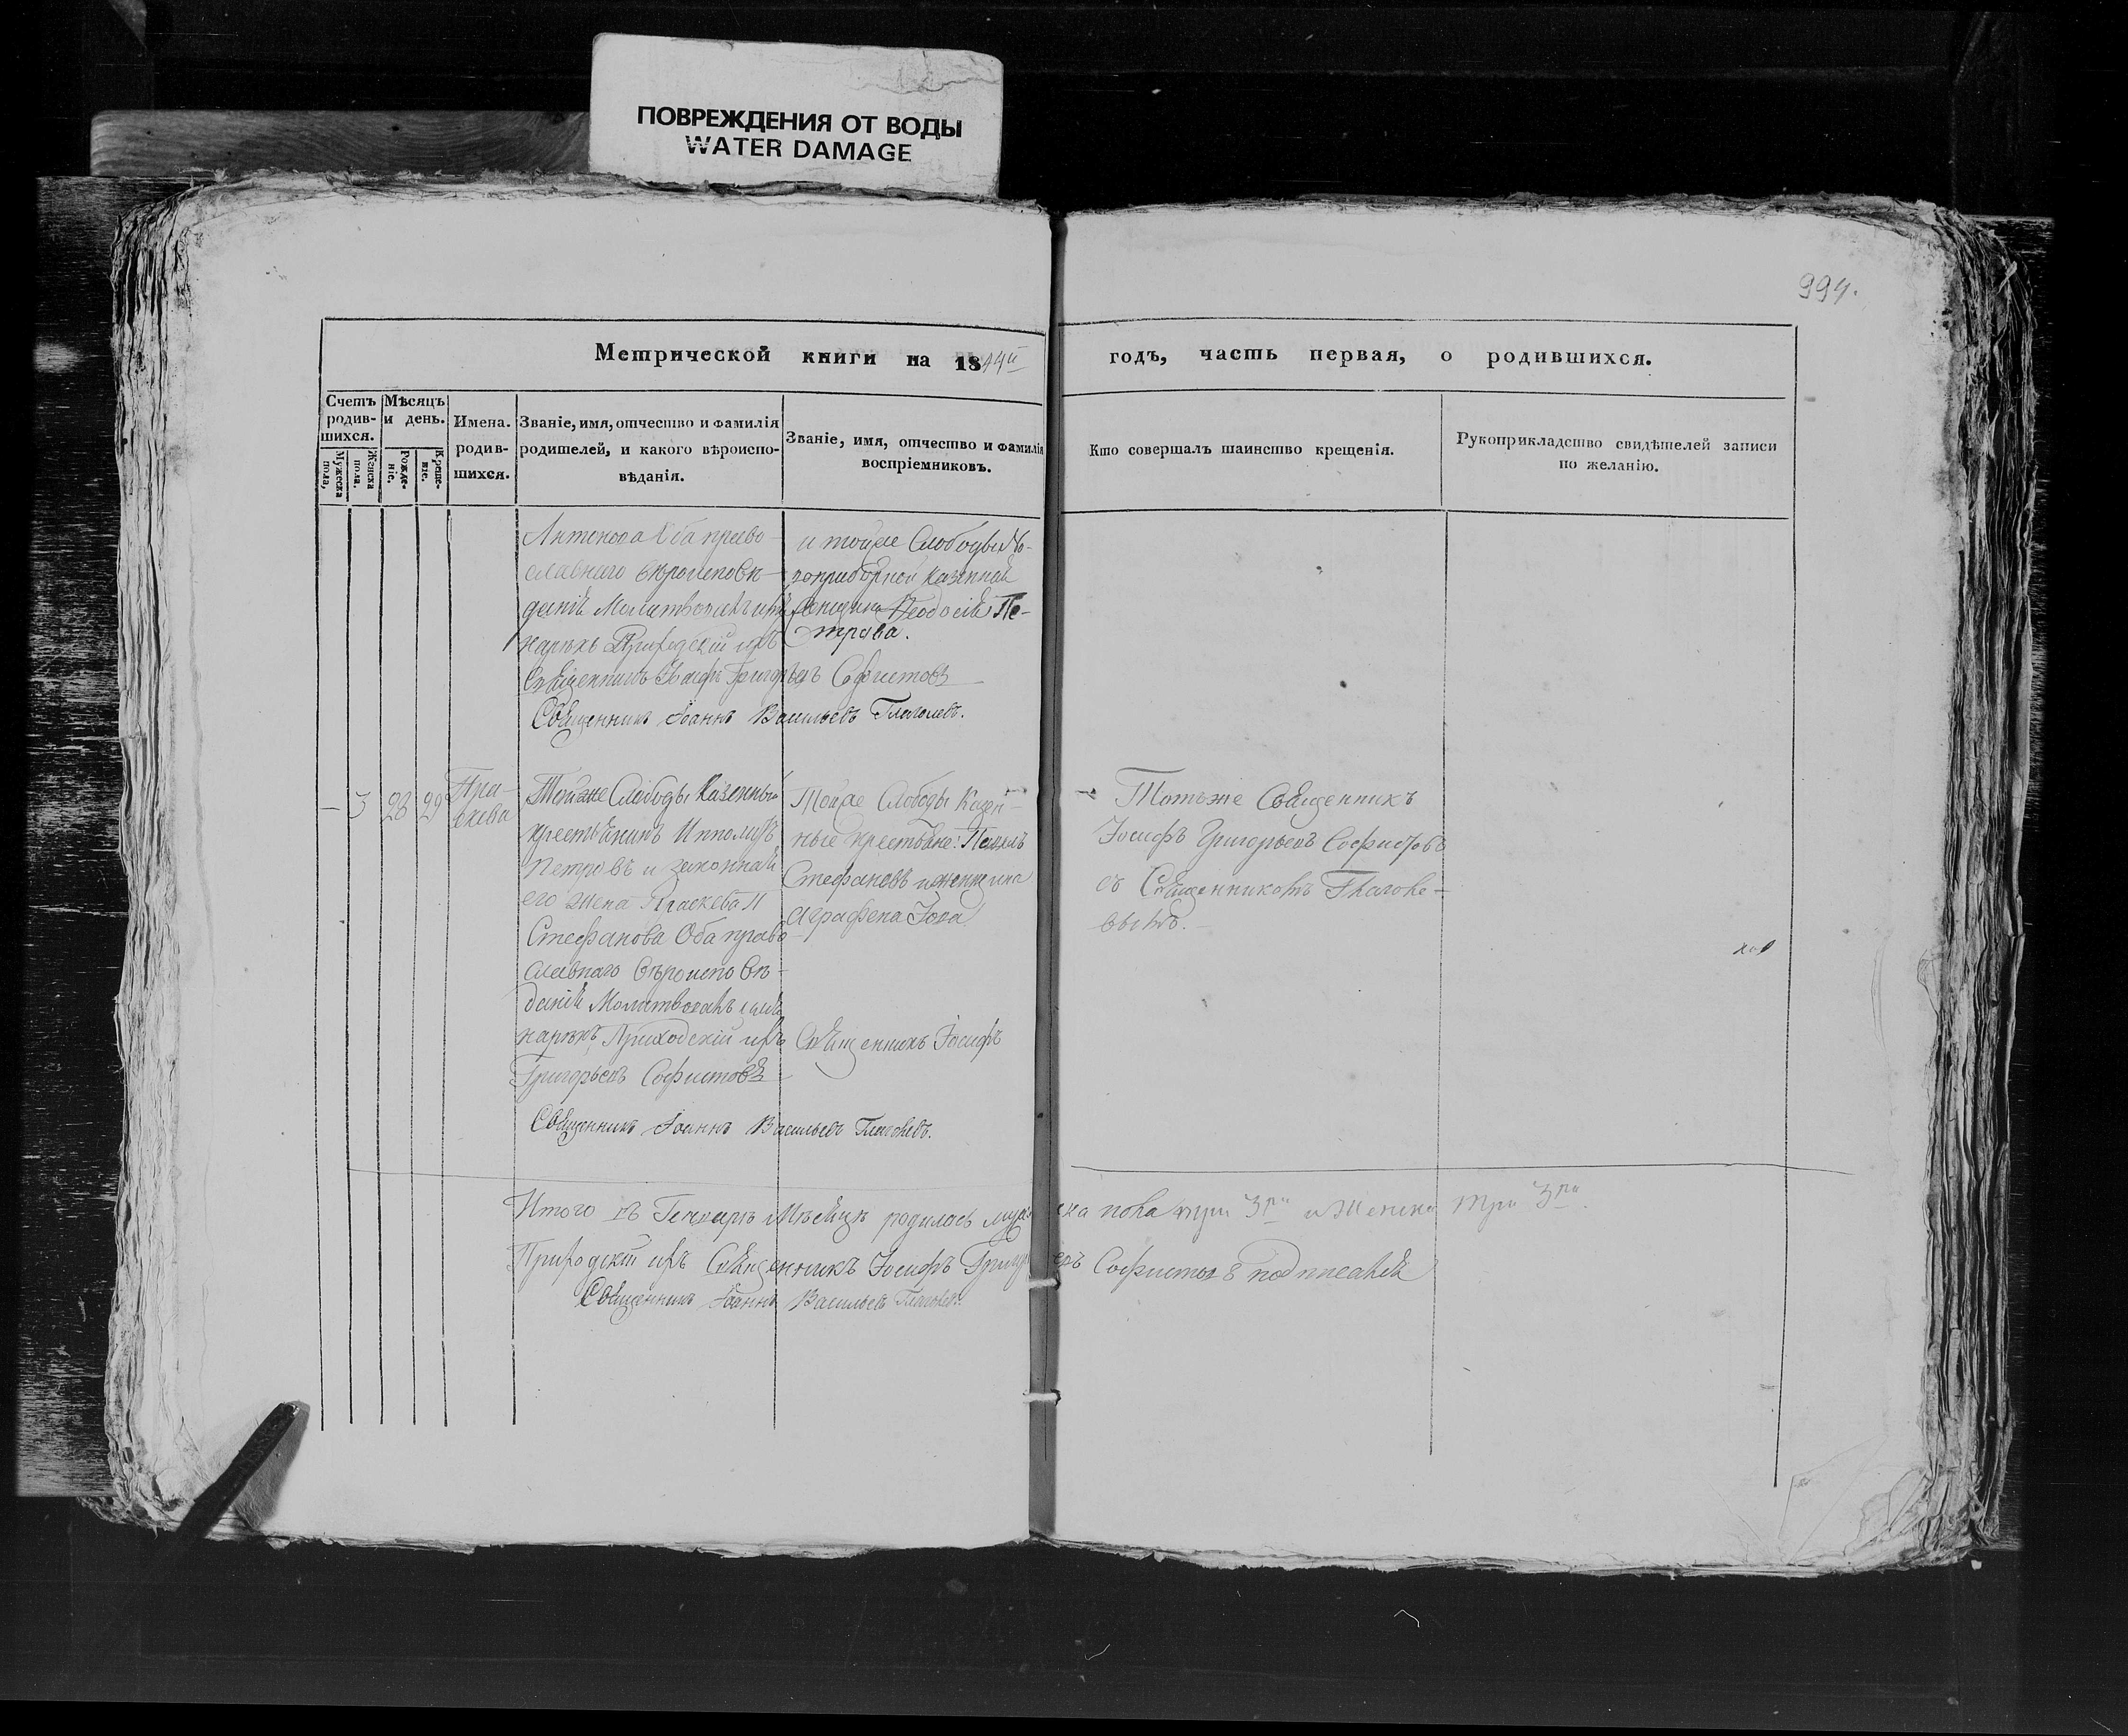 ПОВРЕЖДЕНИЯ ОТ ВОДЫ
WATER DAMAGE
994.
Метрической книги на 1844й годъ, часть первая, о родившихся.
Счетъ родив-шихся.
Мужеска пола,
Женска пола.
Мѣсяцъ и день.
Рожде-ніе.
Креще-ніе.
Имена. родив-шихся.
Званіе, имя, отчество и фамилія
родителей, и какого вѣроиспо-
вѣданія.
Званіе, имя, отчество и фамилія
воспріемниковъ.
Кто совершалъ таинство крещенія.
Рукоприкладство свидѣтелей записи
по желанію.
Антонова Оба право-
славнаго вѣроисповѣ-
данія Молитвовалъ и имя
нарѣкъ Приходскій іерѣ
Священникъ Іосифъ Григорьевъ Софистовъ
и тойже Слободы Но-
воприборной казенная
женщина Ѳеодосія Пе-
трова.
Священникъ Іоаннъ Васильевъ Глаголевъ.
— 3 28 29 Пра-
скева
Тойже Слободы Казенный
крестьянинъ Ипполитъ
Петровъ и законная
его жена Параскева
Стефанова Оба право-
славнаго вѣроисповѣ-
данія Молитвовалъ и имя
нарѣкъ Приходскій іерѣ Священникъ Іосифъ
Григорьевъ Софистовъ
Тойже Слободы Казен-
ные крестьяне: Павелъ
Стефановъ и женщина
Аграфена
Тотъже Священникъ
Іосифъ Григорьевъ Софистовъ
съ Священникомъ Глаголе-
вымъ.
Священникъ Іоаннъ Васильевъ Глаголевъ.
Итого въ Генварѣ Мѣсяцѣ родилось мужеска пола три 3ри и Женска три 3ри.
Приходскій іерѣ Священникъ Іосифъ Григорьевъ Софистовъ подписался
Священникъ Іоаннъ Васильевъ Глаголевъ.